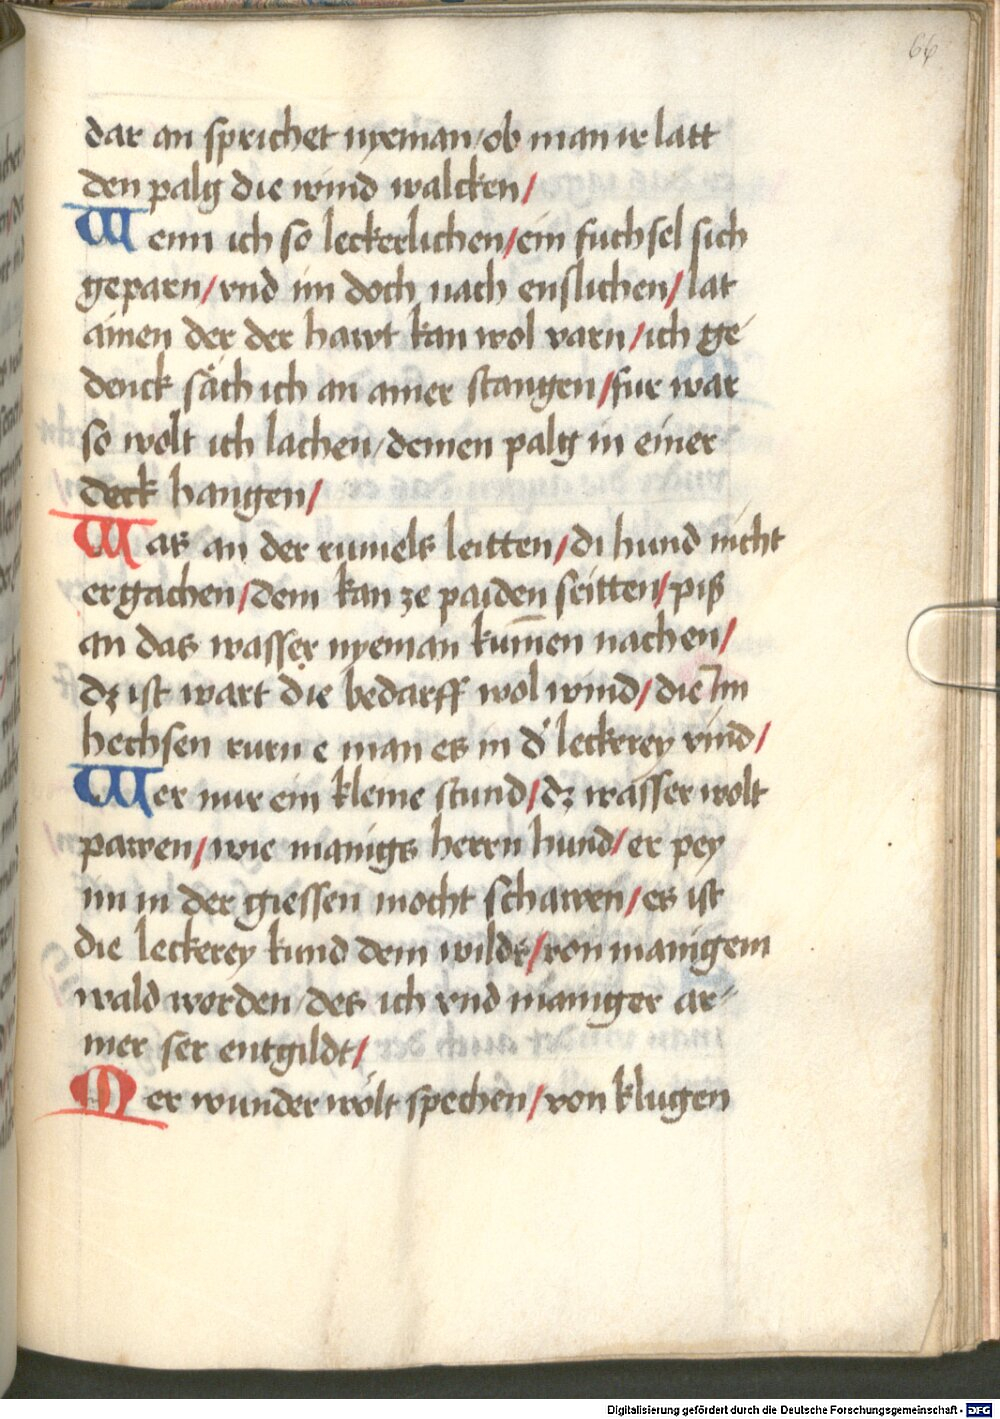 66
dar an sprichet nyeman/ob man ir latt
den palg die wind walcken/
Wenn ich so leckerlichen/ein fuchsel sich
geparn/vnd im doch nach enslichen/lat
ainen der der hawt kan wol varn/ich ge
denck säch ich an ainer stangen/fur war
so wolt ich lachen/deinen palg in einer
deck hangen/
Was an der rumels leitten/di hund nicht
ergachen/dem kan ze paiden seitten/piß
an das wasser nyeman kum̄en nachen/
dz ist wart die bedarff wol wind/die im
hechsen rurn e man es in d' leckerey vind/
Wer nur ein kleine stund/dz wasser wolt
pawen/wie manigs herrn hund/er pey
im in der giessen mocht schawen/es ist
die leckerey kund dem wilde/von manigem
wald worden/des ich vnd maniger ar-
mer ser entgildt/
Wer wunder wölt spechen/von klugen
Digitalisierung gefördert durch die Deutsche Forschungsgemeinschaft - DFG